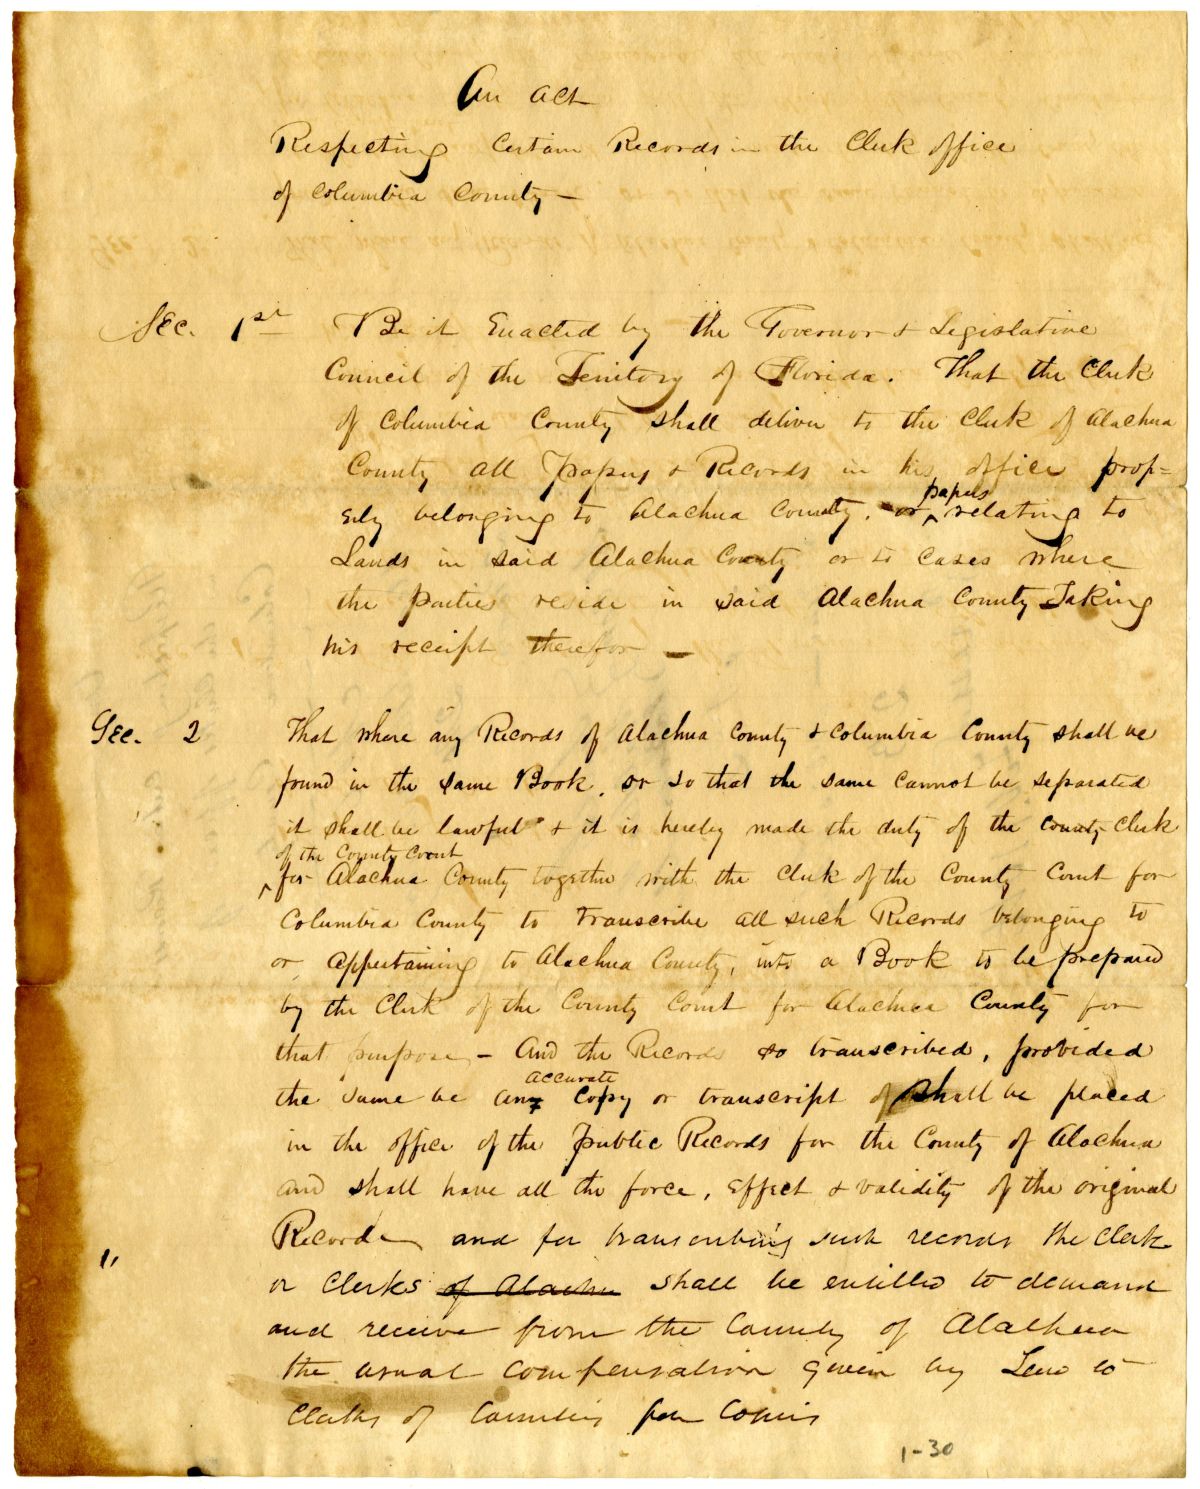 An act
Respecting Certain Records in the Clerk office
of Columbia County —
Sec. 1st Be it Enacted by the Governor & Legislative
Council of the Territory of Florida. That the Clerk
of Columbia County shall deliver to the Clerk of Alachua
County all papers & Records in his office prop=
erly belonging to Alachua County, or papers relating to
Lands in said Alachua County or to cases where
the parties reside in said Alachua County Taking
his receipt therefor —
Sec. 2 That where any Records of Alachua County & Columbia County shall be
found in the same Book, or so that the same cannot be separated
it shall be lawful & it is hereby made the duty of the County Clerk
of the County Court
for Alachua County together with the Clerk of the County Court for
Columbia County to transcribe all such Records belonging to
or appertaining to Alachua County, into a Book to be prepared
by the Clerk of the County Court for Alachua County for
that purpose, — And the Records so transcribed, provided
accurate
the same be any Copy or transcript of shall be placed
in the office of the public Records for the County of Alachua
and shall have all the force, effect & validity of the original
Records and for transcribing such records the Clerk
or Clerks of Alachua shall be entitled to demand
and receive from the County of Alachua
the usual compensation given by Law to
Clerks of Counties for Copies
1-30